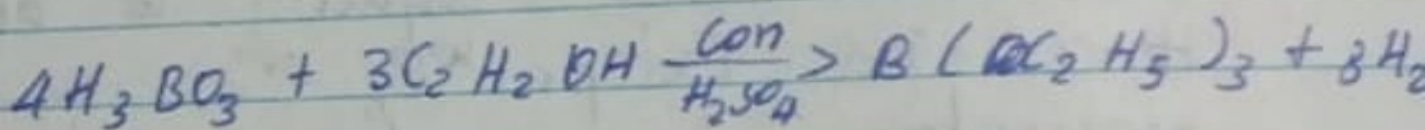 4H₃BO₃ + 3C₂H₂OH —Con/H₂SO₄→ B(OC₂H₅)₃ + 3H₂